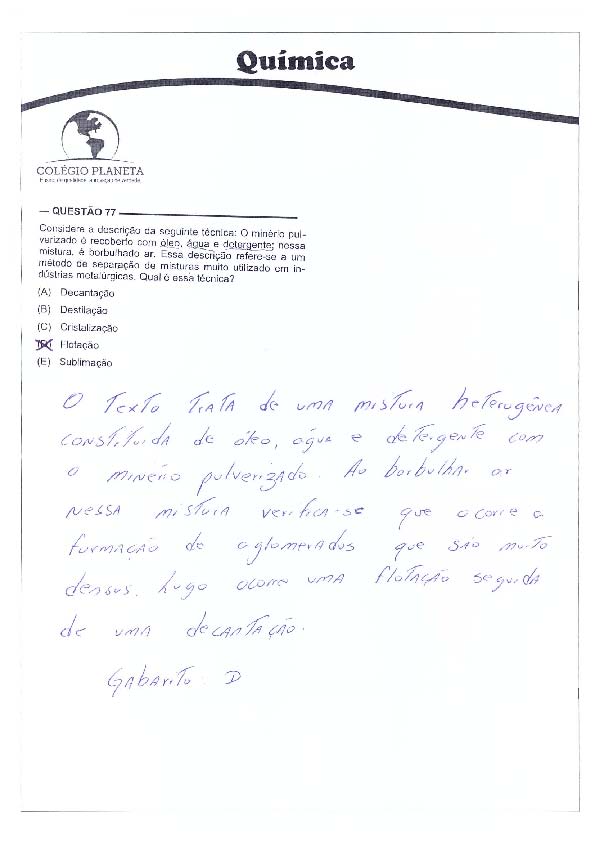 Química
COLÉGIO PLANETA
— QUESTÃO 77
Considere a descrição da seguinte técnica: O minério pul-
verizado é recoberto com óleo, água e detergente; nessa
mistura, é borbulhado ar. Essa descrição refere-se a um
método de separação de misturas muito utilizado em in-
dústrias metalúrgicas. Qual é essa técnica?
(A) Decantação
(B) Destilação
(C) Cristalização
Flotação
(E) Sublimação
O Texto TRATA de uma mistura heterogênea
constituida de óleo, água e detergente com
o minério pulverizado. Ao borbulhar ar
nessa mistura verifica-se que ocorre a
formação de aglomerados que são muito
densos. Logo ocorre uma flotação seguida
de uma decantação.
Gabarito: D